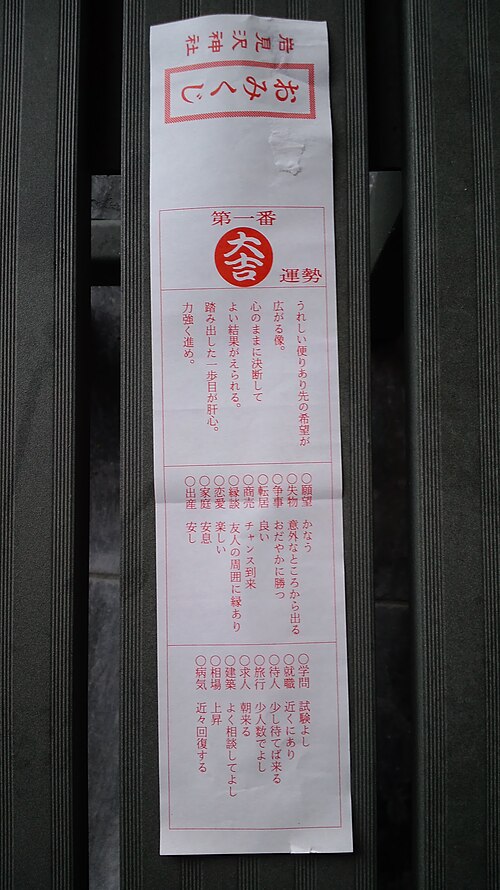 岩見沢神社
おみくじ
第一番
大吉
運勢
うれしい便りあり先の希望が
広がる像。
心のままに決断して
よい結果がえられる。
踏み出した一歩目が肝心。
力強く進め。
○願望 かなう
○失物 意外なところから出る
○争事 おだやかに勝つ
○転居 良い
○商売 チャンス到来
○縁談 友人の周囲に縁あり
○恋愛 楽しい
○家庭 安息
○出産 安し
○学問 試験よし
○就職 近くにあり
○待人 少し待てば来る
○旅行 少人数でよし
○求人 朝来る
○建築 よく相談してよし
○相場 上昇
○病気 近々回復する